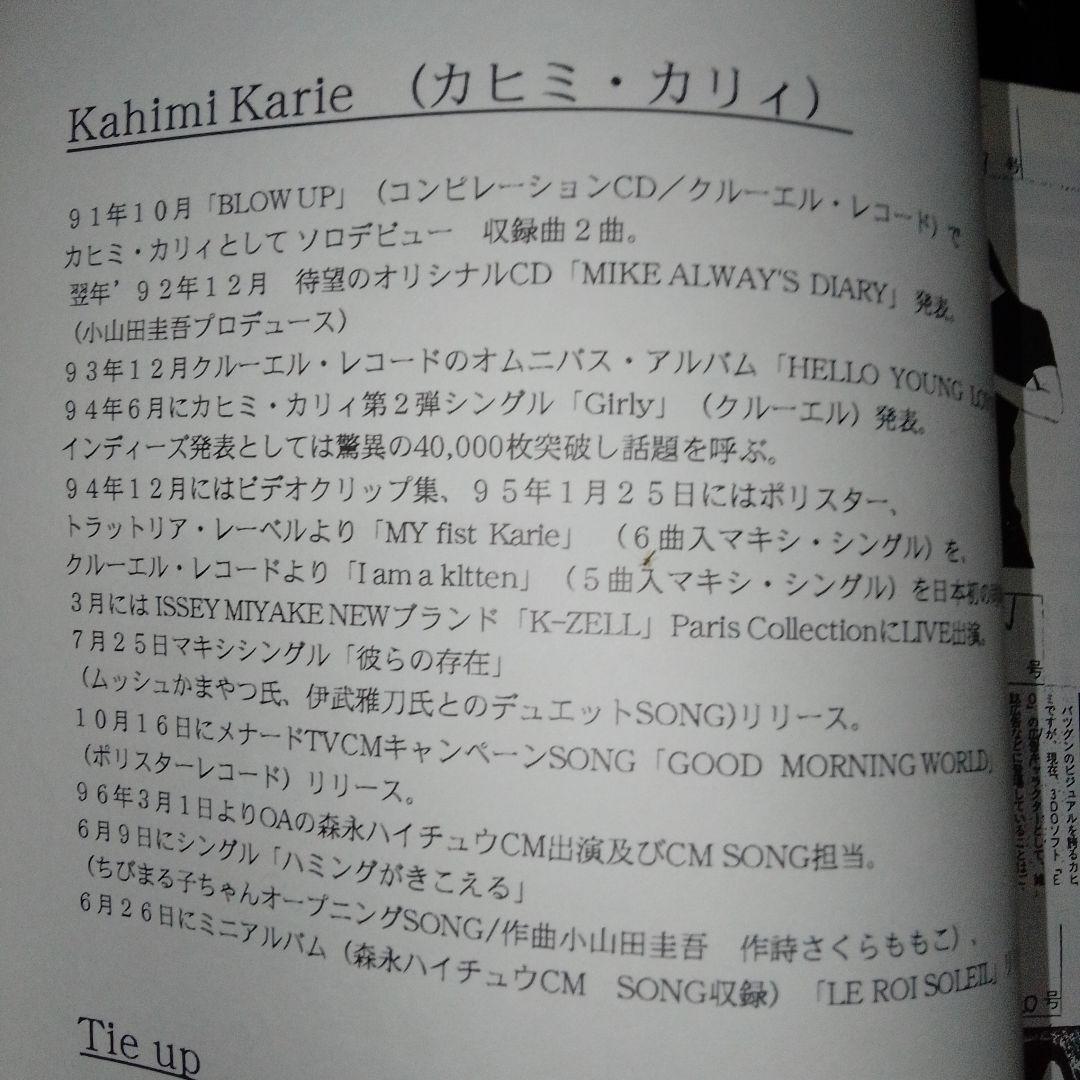 Kahimi Karie (カヒミ・カリィ)
91年10月「BLOW UP」(コンピレーションCD/クルーエル・レコード)で
カヒミ・カリィとして ソロデビュー 収録曲2曲。
翌年'92年12月 待望のオリシナルCD「MIKE ALWAY'S DIARY」発表。
(小山田圭吾プロデュース)
93年12月クルーエル・レコードのオムニバス・アルバム「HELLO YOUNG
94年6月にカヒミ・カリィ第2弾シングル「Girly」(クルーエル)発表。
インディーズ発表としては驚異の40,000枚突破し話題を呼ぶ。
94年12月にはビデオクリップ集、95年1月25日にはポリスター、
トラットリア・レーベルより「MY fist Karie」(6曲入マキシ・シングル)を、
クルーエル・レコードより「I am a kltten」(5曲入マキシ・シングル)を日本初の
3月には ISSEY MIYAKE NEWブランド「K-ZELL」Paris CollectionにLIVE出演。
7月25日マキシシングル「彼らの存在」
(ムッシュかまやつ氏、伊武雅刀氏とのデュエットSONG)リリース。
10月16日にメナードTVCMキャンペーンSONG「GOOD MORNING WORLD」
(ポリスターレコード)リリース。
96年3月1日よりOAの森永ハイチュウCM出演及びCM SONG担当。
6月9日にシングル「ハミングがきこえる」
(ちびまる子ちゃんオープニングSONG/作曲小山田圭吾 作詩さくらももこ)、
6月26日にミニアルバム(森永ハイチュウCM SONG収録)「LE ROI SOLEIL」
Tie up
号
バツグンのビジュアルを誇るカヒ
ミですが、現在、3DOソフト「E
0号